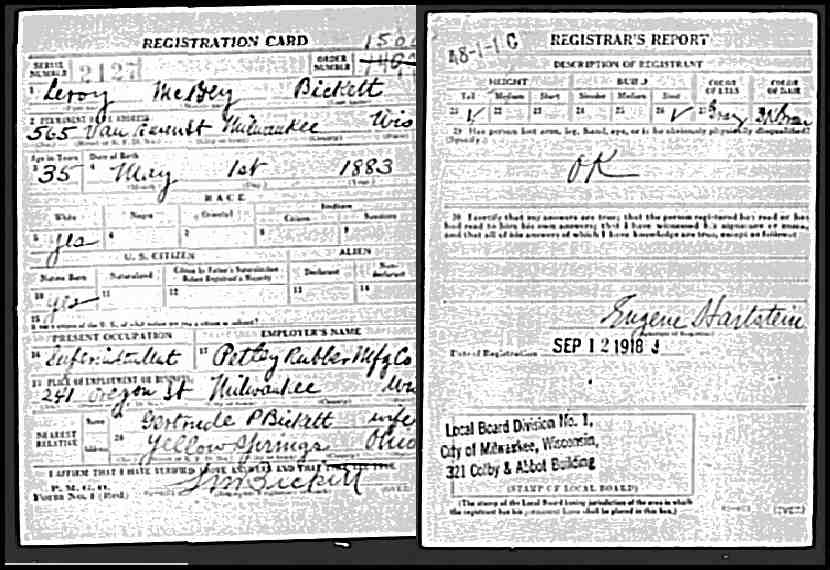 REGISTRATION CARD
SERIAL NUMBER 2127 ORDER NUMBER
1 Leroy Bickett
2 PERMANENT HOME ADDRESS
565 Milwaukee Wis
Age in Years Date of Birth
35 May 1st 1883
(Month) (Day) (Year)
RACE
White Negro Oriental Indian
Citizen Noncitizen
5 yes 6 7 8 9
U. S. CITIZEN ALIEN
Native Born Naturalized Citizen by Father's Naturalization Before Registrant's Majority Declarant Non-declarant
10 yes 11 12 13 14
15
If not a citizen of the U. S., of what nation are you a citizen or subject?
PRESENT OCCUPATION EMPLOYER'S NAME
16 Superintendent 17 Rubber Mfg Co
18 PLACE OF EMPLOYMENT OR BUSINESS
241 Oregon St Milwaukee Wis
NEAREST RELATIVE Name Gertrude P Bickett wife
Address 20 Yellow Springs Ohio
I AFFIRM THAT I HAVE VERIFIED ABOVE ANSWERS AND THAT THEY ARE TRUE
P. M. G. O.
Form No. 1 (Red) Bickett (OVER)
48-1-1 C REGISTRAR'S REPORT
DESCRIPTION OF REGISTRANT
HEIGHT BUILD COLOR OF EYES COLOR OF HAIR
Tall Medium Short Slender Medium Stout
21 ✓ 22 23 24 25 26 ✓ 27 Gray
29 Has person lost arm, leg, hand, eye, or is he obviously physically disqualified?
(Specify.)
OK
30 I certify that my answers are true; that the person registered has read or has
had read to him his own answers; that I have witnessed his signature or mark,
and that all of his answers of which I have knowledge are true, except as follows:
Eugene Hartstein
(Signature of Registrar)
Date of Registration SEP 12 1918
Local Board Division No. 1,
City of Milwaukee, Wisconsin,
321 Colby & Abbot Building
(STAMP OF LOCAL BOARD)
(The stamp of the Local Board having jurisdiction of the area in which
the registrant has his permanent home shall be placed in this box.)
(OVER)